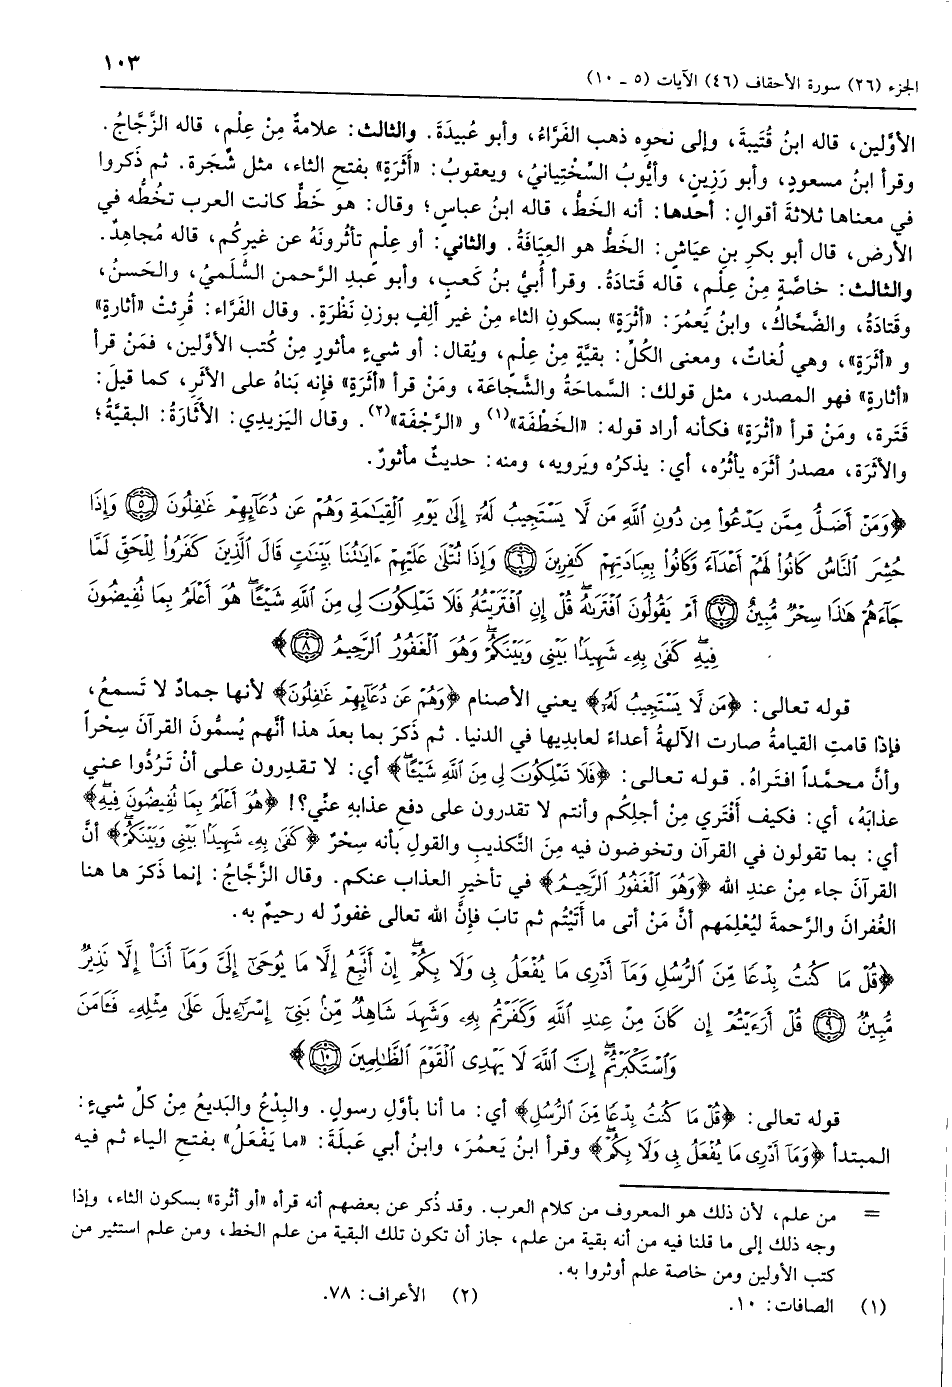 الجزء (٢٦) سورة الأحقاف (٤٦) الآيات (٥ ـ ١٠)
١٠٣
الأوَّلين، قاله ابنُ قُتيبةَ، وإلى نحوِه ذهب الفَرَّاءُ، وأبو عُبيدَةَ. والثالث: علامةٌ مِنْ عِلْمٍ، قاله الزَّجَّاجُ.
وقرأ ابنُ مسعودٍ، وأبو رَزِينٍ، وأيُّوبُ السِّخْتِيانيُ، ويعقوبُ: «أَثَرَةٍ» بفتحِ الثاء، مثل شَجَرة. ثم ذَكروا
في معناها ثلاثةَ أقوالٍ: أحدها: أنه الخَطُّ، قاله ابنُ عباسٍ؛ وقال: هو خَطٌّ كانت العرب تخُطُّه في
الأرض، قال أبو بكرِ بنِ عيَّاشٍ: الخَطُّ هو العِيَافَةُ. والثاني: أو عِلْمٍ تأثُرونَهُ عن غيرِكُم، قاله مُجاهِدٌ.
والثالث: خاصَّةٍ مِنْ عِلْمٍ، قاله قَتادَةُ. وقرأ أُبيُّ بنُ كَعبٍ، وأبو عَبدِ الرَّحمن السُّلَميُ، والحَسنُ،
وقَتادَةُ، والضَّحَّاكُ، وابنُ يَعمُرَ: «أَثْرَةٍ» بسكونِ الثاء مِنْ غير ألِفٍ بوزنِ نَظْرَةٍ. وقال الفَرَّاء: قُرِئت «أثارةٍ»
و «أَثَرَةٍ»، وهي لُغاتٌ، ومعنى الكُلِّ: بقيَّةٍ مِنْ عِلْمٍ، ويُقال: أو شيءٍ مأثورٍ مِنْ كُتب الأوَّلين، فمَنْ قرأ
«أثارةٍ» فهو المصدر، مثل قولك: السَّماحَةُ والشَّجَاعَة، ومَنْ قرأ «أَثَرَةٍ» فإنه بَناهُ على الأثَرِ، كما قيلَ:
قَتَرة، ومَنْ قرأ «أَثْرَةٍ» فكأنه أراد قوله: «الخَطْفَة»(١) و «الرَّجْفَة»(٢). وقال اليَزيدِي: الأَثَارَةُ: البقيَّةُ؛
والأثَرَة، مصدرُ أثَرَه يأثُرُه، أي: يذكرُه ويَرويه، ومنه: حديثٌ مأثورٌ.
﴿وَمَنْ أَضَلُّ مِمَّن يَدْعُوا۟ مِن دُونِ ٱللَّهِ مَن لَّا يَسْتَجِيبُ لَهُۥٓ إِلَىٰ يَوْمِ ٱلْقِيَـٰمَةِ وَهُمْ عَن دُعَآئِهِمْ غَـٰفِلُونَ ٥ وَإِذَا
حُشِرَ ٱلنَّاسُ كَانُوا۟ لَهُمْ أَعْدَآءً وَكَانُوا۟ بِعِبَادَتِهِمْ كَـٰفِرِينَ ٦ وَإِذَا تُتْلَىٰ عَلَيْهِمْ ءَايَـٰتُنَا بَيِّنَـٰتٍ قَالَ ٱلَّذِينَ كَفَرُوا۟ لِلْحَقِّ لَمَّا
جَآءَهُمْ هَـٰذَا سِحْرٌ مُّبِينٌ ٧ أَمْ يَقُولُونَ ٱفْتَرَىٰهُ ۖ قُلْ إِنِ ٱفْتَرَيْتُهُۥ فَلَا تَمْلِكُونَ لِى مِنَ ٱللَّهِ شَيْـًٔا ۖ هُوَ أَعْلَمُ بِمَا تُفِيضُونَ
فِيهِ ۖ كَفَىٰ بِهِۦ شَهِيدًۢا بَيْنِى وَبَيْنَكُمْ ۖ وَهُوَ ٱلْغَفُورُ ٱلرَّحِيمُ ٨﴾
قوله تعالى: ﴿مَن لَّا يَسْتَجِيبُ لَهُۥٓ﴾ يعني الأصنام ﴿وَهُمْ عَن دُعَآئِهِمْ غَـٰفِلُونَ﴾ لأنها جمادٌ لا تَسمعُ،
فإذا قامتِ القيامةُ صارت الآلهةُ أعداءً لعابدِيها في الدنيا. ثم ذَكَرَ بما بعدَ هذا أنَّهم يُسمُّونَ القرآنَ سِحْراً
وأنَّ محمَّداً افتَراهُ. قوله تعالى: ﴿فَلَا تَمْلِكُونَ لِى مِنَ ٱللَّهِ شَيْـًٔا﴾ أي: لا تقدِرون على أنْ تَرُدُّوا عني
عذابَهُ، أي: فكيف أَفْتَري مِنْ أجلِكُم وأنتم لا تقدرون على دفعِ عذابهِ عنِّي؟! ﴿هُوَ أَعْلَمُ بِمَا تُفِيضُونَ فِيهِ﴾
أي: بما تقولون في القرآن وتخوضون فيه مِنَ التَّكذيبِ والقولِ بأنه سِحْرٌ ﴿كَفَىٰ بِهِۦ شَهِيدًۢا بَيْنِى وَبَيْنَكُمْ﴾ أنَّ
القرآنَ جاء مِنْ عندِ الله ﴿وَهُوَ ٱلْغَفُورُ ٱلرَّحِيمُ﴾ في تأخيرِ العذاب عنكم. وقال الزَّجَّاجُ: إنما ذَكرَ ها هنا
الغُفرانَ والرَّحمةَ ليُعْلِمَهم أنَّ مَنْ أتى ما أَتَيْتُم ثم تابَ فإنَّ الله تعالى غفورٌ له رحيمٌ به.
﴿قُلْ مَا كُنتُ بِدْعًا مِّنَ ٱلرُّسُلِ وَمَآ أَدْرِى مَا يُفْعَلُ بِى وَلَا بِكُمْ ۖ إِنْ أَتَّبِعُ إِلَّا مَا يُوحَىٰٓ إِلَىَّ وَمَآ أَنَا۠ إِلَّا نَذِيرٌ
مُّبِينٌ ٩ قُلْ أَرَءَيْتُمْ إِن كَانَ مِنْ عِندِ ٱللَّهِ وَكَفَرْتُم بِهِۦ وَشَهِدَ شَاهِدٌ مِّنۢ بَنِىٓ إِسْرَٰٓءِيلَ عَلَىٰ مِثْلِهِۦ فَـَٔامَنَ
وَٱسْتَكْبَرْتُمْ ۖ إِنَّ ٱللَّهَ لَا يَهْدِى ٱلْقَوْمَ ٱلظَّـٰلِمِينَ ١٠﴾
قوله تعالى: ﴿قُلْ مَا كُنتُ بِدْعًا مِّنَ ٱلرُّسُلِ﴾ أي: ما أنا بأوَّلِ رسولٍ. والبِدْعُ والبَديعُ مِنْ كلِّ شيءٍ:
المبتدأ ﴿وَمَآ أَدْرِى مَا يُفْعَلُ بِى وَلَا بِكُمْ﴾ وقرأ ابنُ يَعمُرَ، وابنُ أبي عَبلَةَ: «ما يَفْعَلُ» بفتح الياء ثم فيه
= من علم، لأن ذلك هو المعروف من كلام العرب. وقد ذُكر عن بعضهم أنه قرأه «أو أثْرة» بسكون الثاء، وإذا
وجه ذلك إلى ما قلنا فيه من أنه بقية من علم، جاز أن تكون تلك البقية من علم الخط، ومن علم استثير من
كتب الأولين ومن خاصة علم أوثروا به.
(١) الصافات: ١٠. (٢) الأعراف: ٧٨.